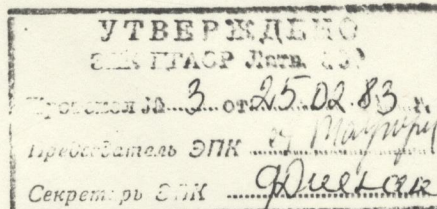 УТВЕРЖДЕНО
ЭПК ЦГАОР Латв. ССР
Протокол № 3 от 25.02.83 г.
Председатель ЭПК
Секретарь ЭПК